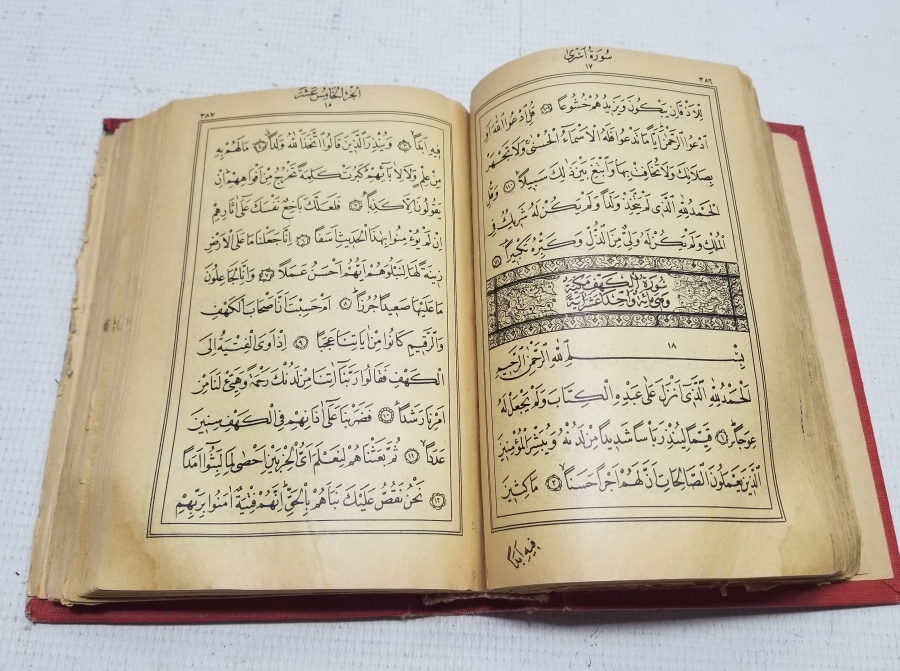 سورة اسرى
١٧
٣٨٦
لِلْاَذْقَانِ يَبْكُونَ وَيَزِيدُهُمْ خُشُوعًا ۝ قُلِ ادْعُوا اللّٰهَ اَوِ
ادْعُوا الرَّحْمٰنَ اَيًّا مَا تَدْعُوا فَلَهُ الْاَسْمَاءُ الْحُسْنٰى وَلَا تَجْهَرْ
بِصَلَاتِكَ وَلَا تُخَافِتْ بِهَا وَابْتَغِ بَيْنَ ذٰلِكَ سَبِيلًا ﴿١١٠﴾ وَقُلِ
الْحَمْدُ لِلّٰهِ الَّذِى لَمْ يَتَّخِذْ وَلَدًا وَلَمْ يَكُنْ لَهُ شَرِيكٌ فِى
الْمُلْكِ وَلَمْ يَكُنْ لَهُ وَلِىٌّ مِنَ الذُّلِّ وَكَبِّرْهُ تَكْبِيرًا ﴿١١١﴾
سورة الكهف مكية
وهى مائة واحد عشر اية
١٨
بِسْمِ اللّٰهِ الرَّحْمٰنِ الرَّحِيمِ
اَلْحَمْدُ لِلّٰهِ الَّذِى اَنْزَلَ عَلٰى عَبْدِهِ الْكِتَابَ وَلَمْ يَجْعَلْ لَهُ
عِوَجًا ﴿١﴾ قَيِّمًا لِيُنْذِرَ بَاْسًا شَدِيدًا مِنْ لَدُنْهُ وَيُبَشِّرَ الْمُؤْمِنِينَ
الَّذِينَ يَعْمَلُونَ الصَّالِحَاتِ اَنَّ لَهُمْ اَجْرًا حَسَنًا ﴿٢﴾ مَاكِثِينَ
فِيهِ اَبَدًا
الجزء الخامس عشر
١٥
٣٨٧
فِيهِ اَبَدًا ﴿٣﴾ وَيُنْذِرَ الَّذِينَ قَالُوا اتَّخَذَ اللّٰهُ وَلَدًا ﴿٤﴾ مَا لَهُمْ بِهِ
مِنْ عِلْمٍ وَلَا لِاٰبَائِهِمْ كَبُرَتْ كَلِمَةً تَخْرُجُ مِنْ اَفْوَاهِهِمْ اِنْ
يَقُولُونَ اِلَّا كَذِبًا ﴿٥﴾ فَلَعَلَّكَ بَاخِعٌ نَفْسَكَ عَلٰى اٰثَارِهِمْ
اِنْ لَمْ يُؤْمِنُوا بِهٰذَا الْحَدِيثِ اَسَفًا ﴿٦﴾ اِنَّا جَعَلْنَا مَا عَلَى الْاَرْضِ
زِينَةً لَهَا لِنَبْلُوَهُمْ اَيُّهُمْ اَحْسَنُ عَمَلًا ﴿٧﴾ وَاِنَّا لَجَاعِلُونَ
مَا عَلَيْهَا صَعِيدًا جُرُزًا ﴿٨﴾ اَمْ حَسِبْتَ اَنَّ اَصْحَابَ الْكَهْفِ
وَالرَّقِيمِ كَانُوا مِنْ اٰيَاتِنَا عَجَبًا ﴿٩﴾ اِذْ اَوَى الْفِتْيَةُ اِلَى
الْكَهْفِ فَقَالُوا رَبَّنَا اٰتِنَا مِنْ لَدُنْكَ رَحْمَةً وَهَيِّئْ لَنَا مِنْ
اَمْرِنَا رَشَدًا ﴿١٠﴾ فَضَرَبْنَا عَلٰى اٰذَانِهِمْ فِى الْكَهْفِ سِنِينَ
عَدَدًا ﴿١١﴾ ثُمَّ بَعَثْنَاهُمْ لِنَعْلَمَ اَىُّ الْحِزْبَيْنِ اَحْصٰى لِمَا لَبِثُوا اَمَدًا
﴿١٢﴾ نَحْنُ نَقُصُّ عَلَيْكَ نَبَاَهُمْ بِالْحَقِّ اِنَّهُمْ فِتْيَةٌ اٰمَنُوا بِرَبِّهِمْ